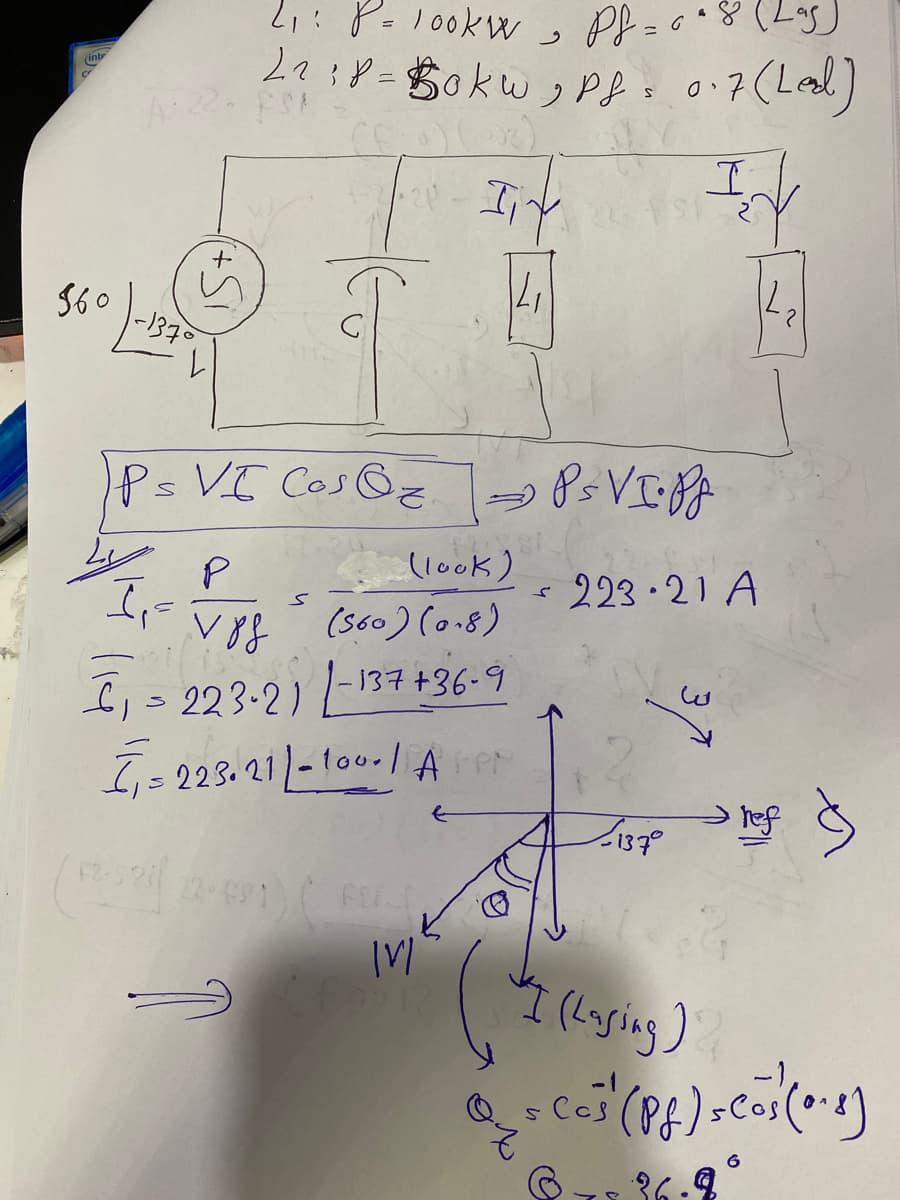 L1: P = 100kW , Pf = 0.8 (Lag)
L2 : P = 50kW , Pf = 0.7 (Lead)
I1
I2
+
560∠-137°
C
L1
L2
P = VI Cos θz ⇒ P = VI·Pf
L1
I1 = P / V Pf = (100K) / (560)(0.8) = 223.21 A
I1 = 223.21∠-137+36.9
I1 = 223.21∠-100.1 A
ω
ref
-137°
θ
|V|
⇒
I (Lasing)
θz = Cos⁻¹(Pf) = Cos⁻¹(0.8)
θz = 36.9°